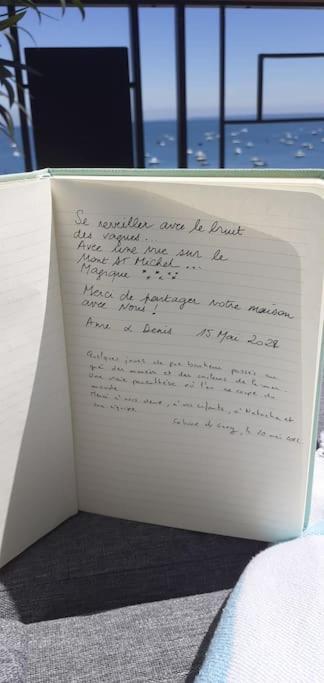 Se reveiller avec le bruit
des vagues...
Avec une vue sur le
Mont St Michel ....
Magique
Merci de partager votre maison
avec nous !
Anne & Denis 15 Mai 202
Quelques jours de pur bonheur passés au
gré des marées et des couleurs de la mer.
Une vraie parenthèse où l'on se coupe du
monde.
Merci à vous deux, à vos enfants, à Natacha et
son équipe.
le 20 mai